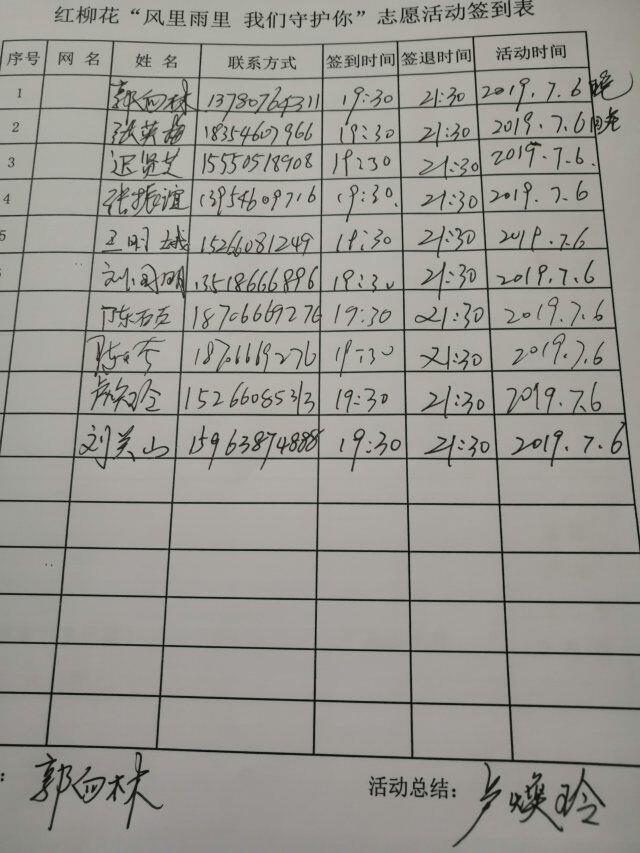 红柳花“风里雨里 我们守护你”志愿活动签到表
序号 网名 姓名 联系方式 签到时间 签退时间 活动时间
1 郭向林 13780764311 19:30 21:30 2019.7.6
2 张英梅 18354607966 19:30 21:30 2019.7.6
3 迟贤芝 15550518908 19:30 21:30 2019.7.6.
4 张振谊 13954609716 19:30. 21:30 2019.7.6
5 王明 15266081249 19:30 21:30 2019.7.6
刘国明 13518666896 19:30 21:30 2019.7.6
18706669276 19:30 21:30 2019.7.6
18706669276 19:30 21:30 2019.7.6
15266085313 19:30 21:30 2019.7.6
刘关山 15963874888 19:30 21:30 2019.7.6
: 郭向林 活动总结: 卢焕玲